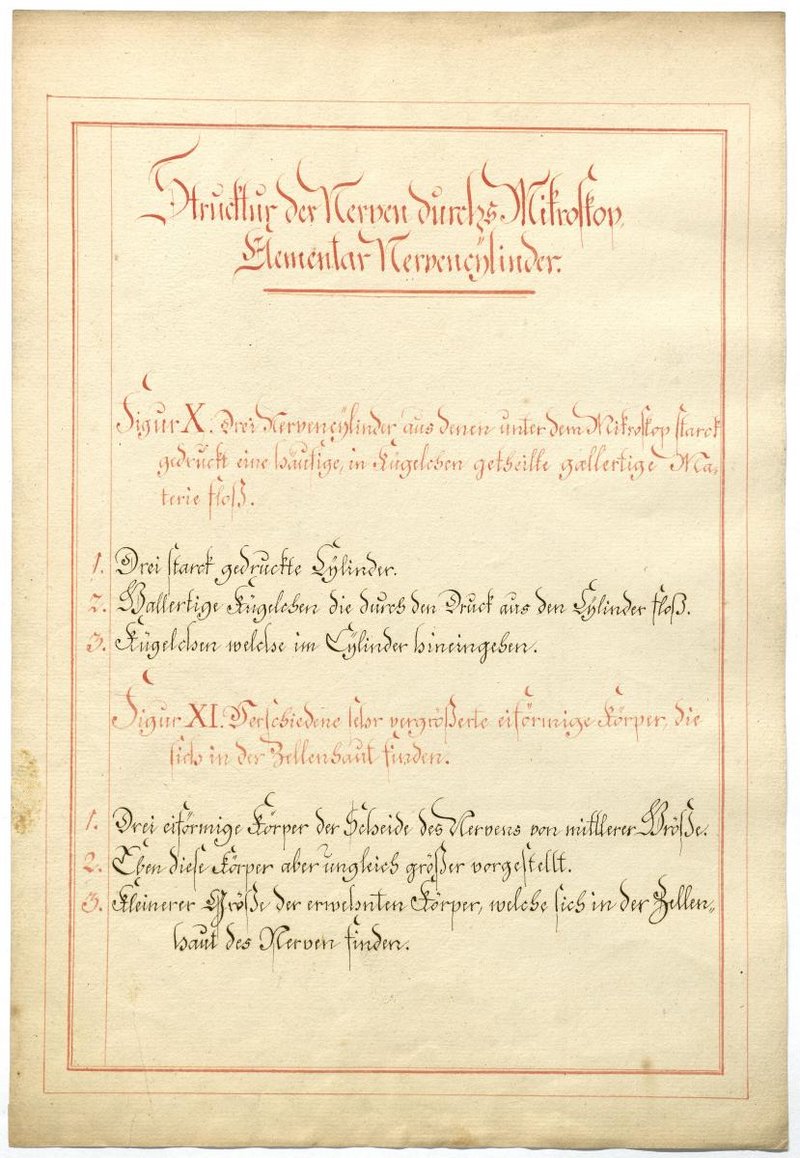 Strucktur der Nerven durchs Mikroskop,
Elementar Nervencÿlinder.
Figur X. Drei Nervencÿlinder aus denen unter dem Mikroskop starck
gedruckt eine häufige, in Kügelchen getheilte gallertige Ma-
terie floß.
1. Drei starck gedruckte Cÿlinder.
2. Gallertige Kügelchen die durch den Druck aus den Cÿlinder floß.
3. Kügelchen welche im Cÿlinder hineingehen.
Figur XI. Verschiedene sehr vergrößerte eiförmige Körper, die
sich in der Zellenhaut finden.
1. Drei eiförmige Körper der Scheide des Nervens von mittlerer Größe.
2. Eben diese Körper aber ungleich größer vorgestellt.
3. Kleinerer Größe der erwehnten Körper, welche sich in der Zellen-
haut des Nerven finden.